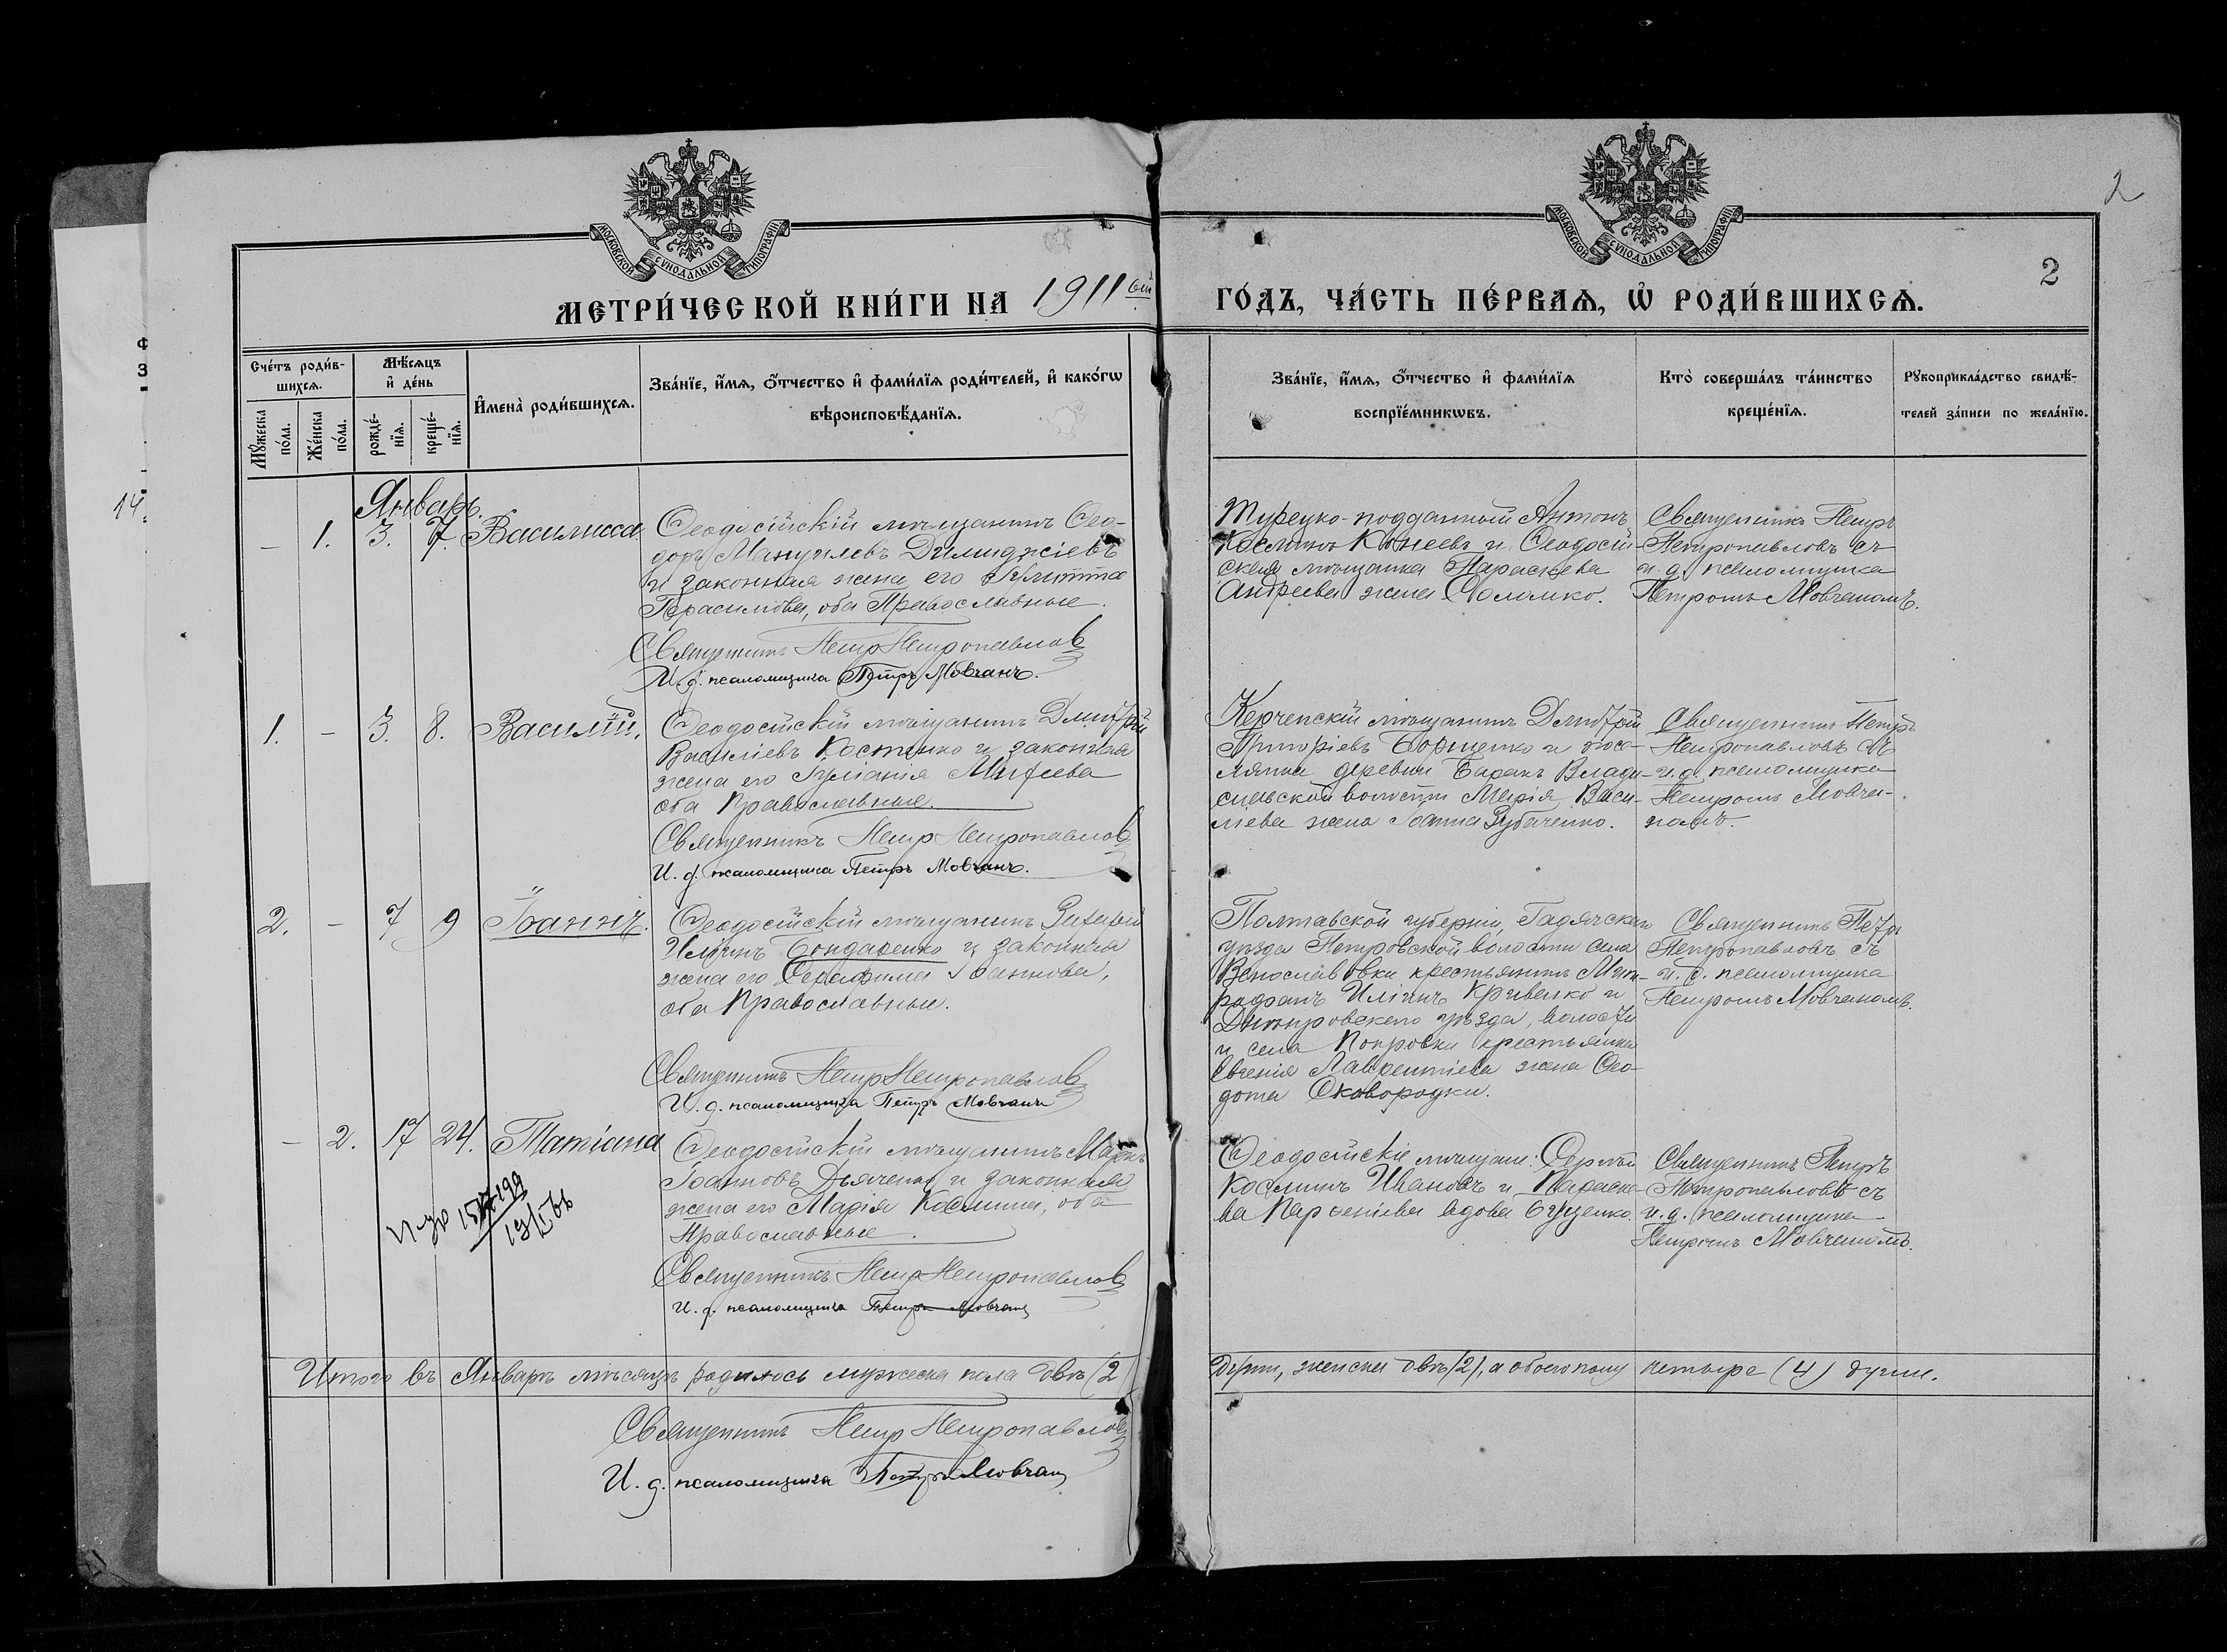 МОСКОВСКОЙ СѴНОДАЛЬНОЙ ТИПОГРАФІИ
МОСКОВСКОЙ СѴНОДАЛЬНОЙ ТИПОГРАФІИ
2
2
МЕТРИ́ЧЕСКОЙ КНИ́ГИ НА 1911ый ГО́ДЪ, ЧА́СТЬ ПЕ́РВАѦ, Ѡ҆ РОДИ́ВШИХСѦ.
Сче́тъ роди́в-
шихсѧ.
Мꙋ́жеска по́ла.
Же́нска по́ла.
Мѣ́сѧцъ
и҆ де́нь
рожде́-
нїѧ.
креще́-
нїѧ.
И҆мена̀ роди́вшихсѧ.
Зва́нїе, и҆́мѧ, ѻ҆́тчество и҆ фами́лїѧ роди́телей, и҆ како́гѡ
вѣроисповѣ́данїѧ.
Зва́нїе, и҆́мѧ, ѻ҆́тчество и҆ фами́лїѧ
воспрїе́мникѡвъ.
Кто̀ соверша́лъ та́инство
креще́нїѧ.
Рꙋкоприкла́дство свидѣ́-
телей за́писи по жела́нїю.
14.
Январь.
– 1. 3. 7. Василисса
Ѳеодосійскій мѣщанинъ Ѳео-
доръ Мануиловъ Димиджіевъ
и законная жена его
Герасимова, оба Православные.
Священникъ Петр Петропавлов
И. д. псаломщика Петръ Мовчанъ.
Турецко-подданный Антонъ
Космипъ Конеевъ и Ѳеодосій-
ская мѣщанка Параскева
Андреева жена Соломко.
Священникъ Петръ
Петропавловъ съ
и. д. псаломщика
Петромъ Мовчаномъ.
1. – 3. 8. Василій.
Ѳеодосійскій мѣщанинъ Дмитрій
Василіевъ Костенко и законная
жена его Іуліанія Матѳеева
оба Православные.
Священникъ Петр Петропавлов
И. д. псаломщика Петръ Мовчанъ.
Керченскій мѣщанинъ Дмитрій
Григоріевъ Борщенко и посе-
лянка деревни Баракъ Влади-
славской волости Марія Васи-
ліева жена Іоанна Зубаченко.
Священникъ Петръ
Петропавловъ съ
и. д. псаломщика
Петромъ Мовча-
номъ.
2. – 7 9 Іоаннъ.
Ѳеодосійскій мѣщанинъ
Иліинъ Бондаренко и законная
жена его Серафима Іоаннова,
оба Православные.
Священникъ Петр Петропавлов
И. д. псаломщика Петръ Мовчанъ
Полтавской губерніи, Гадячскаго
уѣзда Петровской волости села
Венославовки крестьянинъ Мит-
рофанъ Иліинъ Кривенко и
Днѣпровскаго уѣзда, волости
и села Покровки крестьянка
Евгенія Лаврентіева жена Ѳео-
дота Сковородки.
Священникъ Петръ
Петропавловъ съ
и. д. псаломщика
Петромъ Мовчаномъ.
– 2. 17 24. Татіана
Ѳеодосійскій мѣщанинъ Маркъ
Іоанновъ Дьяченко и законная
жена его Марія Космина, оба
Православные.
Священникъ Петр Петропавлов
И. д. псаломщика Петръ Мовчанъ
Ѳеодосійскіе мѣщане: Сергѣй
Косминъ Ивановъ и Параске-
ва Парѳеніева вдова Буценко.
Священникъ Петръ
Петропавловъ съ
и. д. псаломщика
Петромъ Мовчаномъ.
Итого въ Январѣ мѣсяцѣ родилось мужеска пола двѣ (2) души, женска двѣ (2), а обоего полу четыре (4) души.
Священникъ Петр Петропавлов
И. д. псаломщика Петръ Мовчанъ